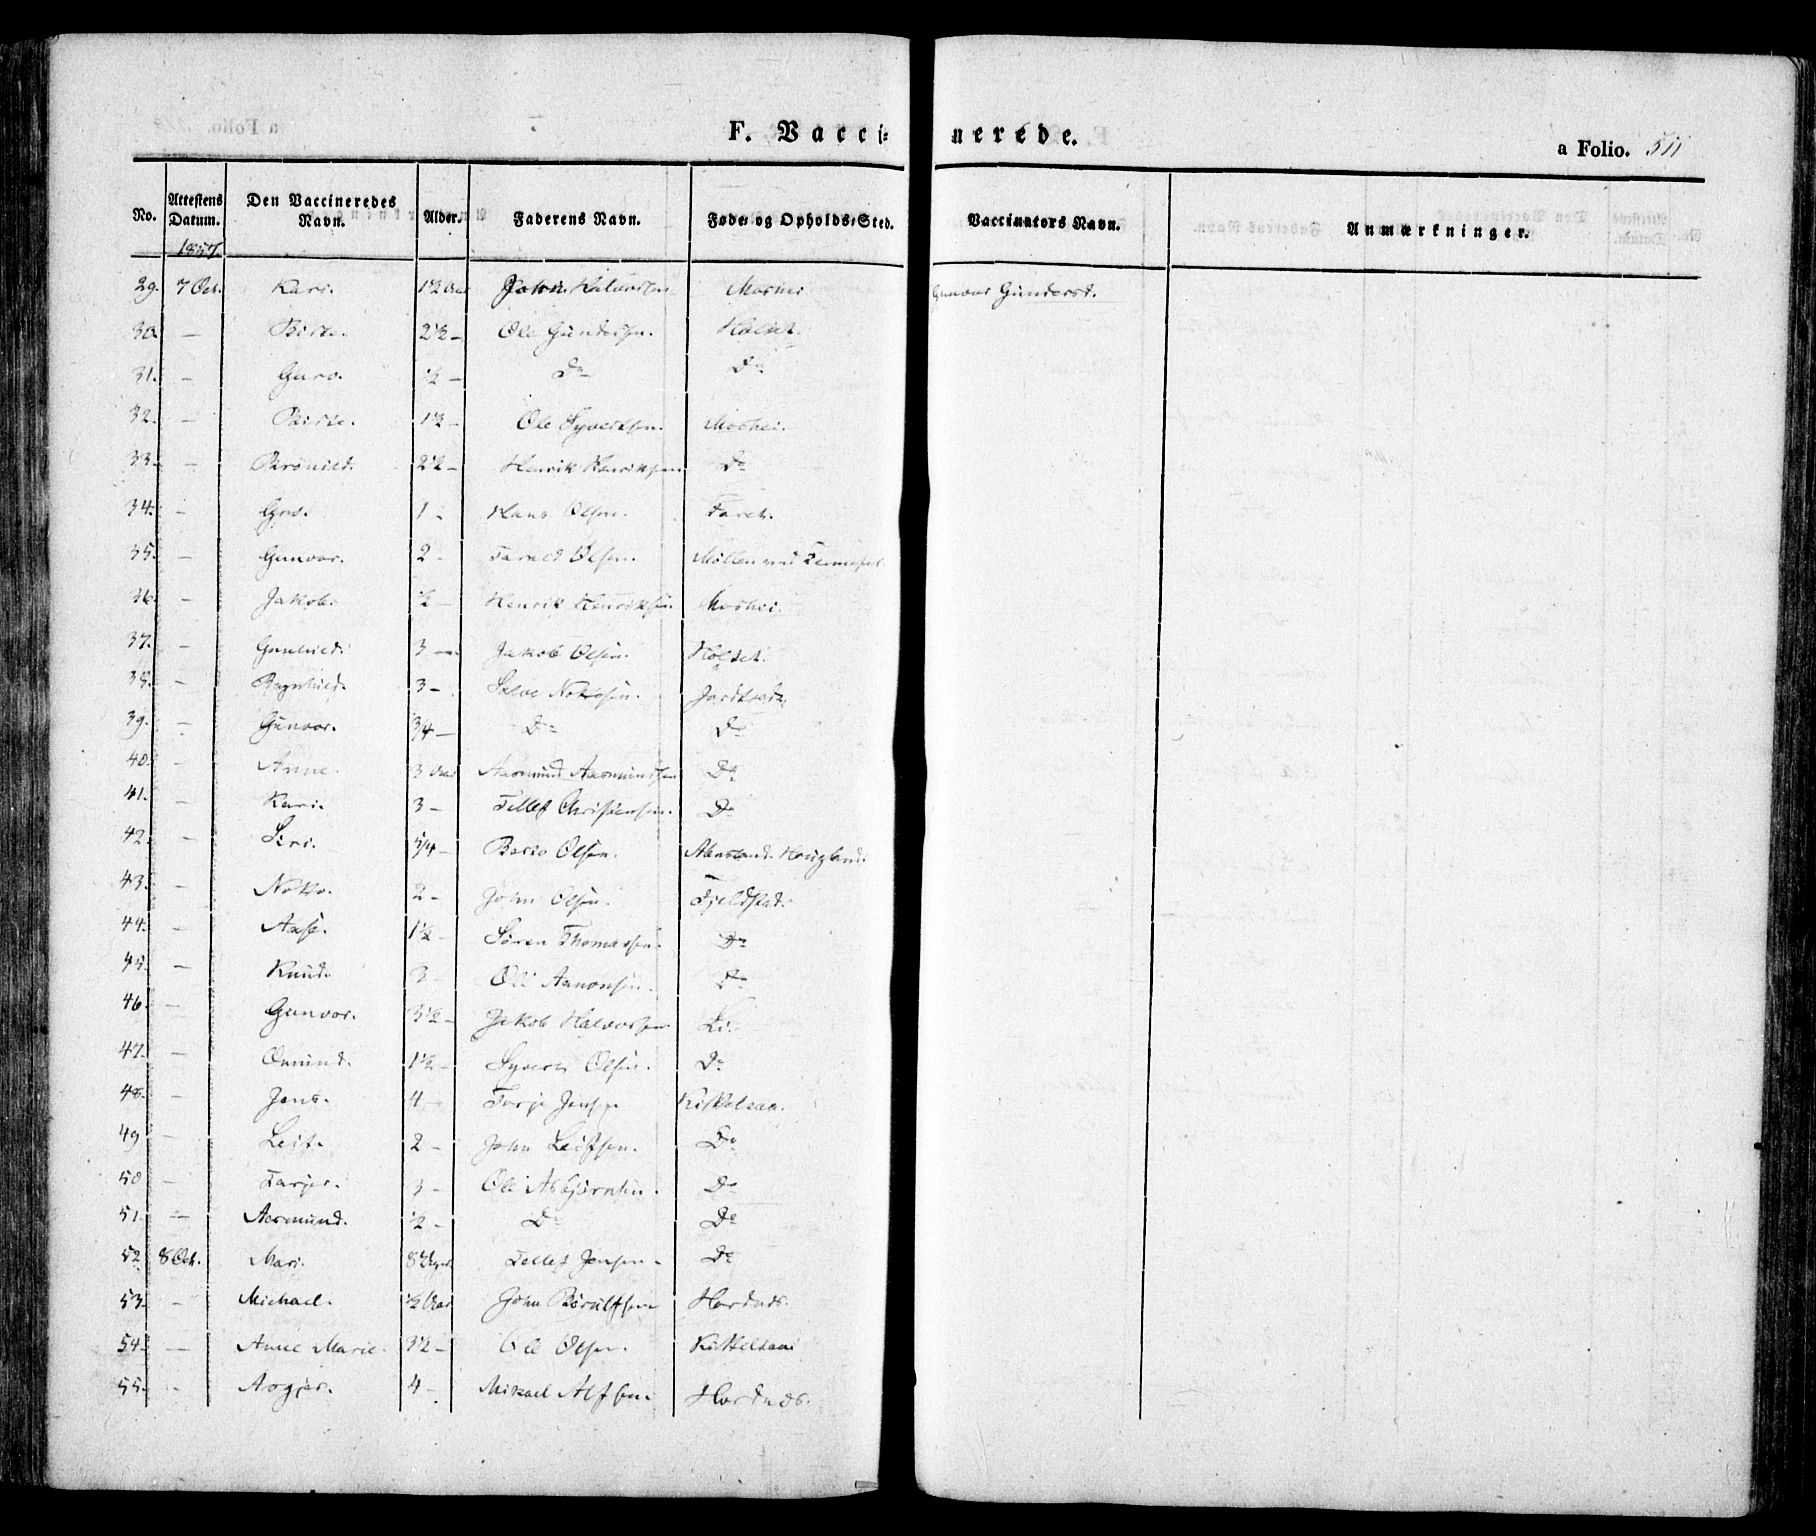 F. Vacci=nerede.
a Folio. 511
No. Attestens Datum. Den Vaccineredes Navn. Alder. Faderens Navn. Føde og Opholds=Sted. Vaccinators Navn. Anmærkninger.
1857.
29. 7 Oct. Kari. 1½ Aar Gunvor Gundersd.
30. — Birte. 2½ — Ole Gundersen. Holtet.
31. — Guro. ½ — Do Do
32. — Birte. 1½ — Ole Syvertsen. Moshei.
33. — 2½ — Henrik Henriksen Do
34. — Gro. 1 - Hans Olsen.
35. — Gunvor. 2 - Olsen. Møllen ved
36. — Jakob. ½ — Henrik Henriksen. Moshei.
37. — Gunhild. 3 — Jakob Olsen. Holtet.
38. — Ragnhild. 3 — Salve
39. — Gunvor. 3/4 — Do Do
40. — Anne. 3 Aar Aasmund Aasmundsen Do
41. — Kari. 3 — Tellef Christensen. Do
42. — Siri. 5/4 — Olsen.
43. — 2 - John Olsen. Fjeldstad.
44. — Aase. 1½ - Søren Thomassen. Do
45. — Knud. 3 - Ole Aanonsen. Do
46. — Gunvor. 3½ — Jakob Halvorsen. Li.
47. — Omund. 1½ — Syvert Olsen. Do
48. — Jens. 4 - Terje Jensen
49 — Leif. 2 - John Leifsen. Do
50 — Tarjer. 3 — Ole Asbjørnsen. Do
51. — Aasmund. ½ - Do Do
52 8 Oct. Mari. 8 Uger Tellef Jensen. Do
53. - Michael. ½ Aar John
54. — Anne Marie. 3½ — Ole Olsen.
55. - 4 - Mikael Alfsen